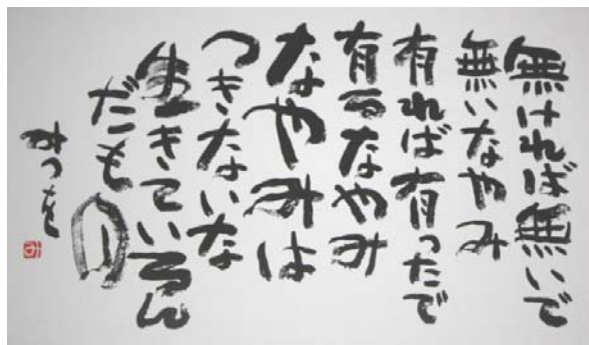 無ければ無いで
無いなやみ
有れば有ったで
有るなやみ
なやみは
つきないな
生きているん
だもの
みつを